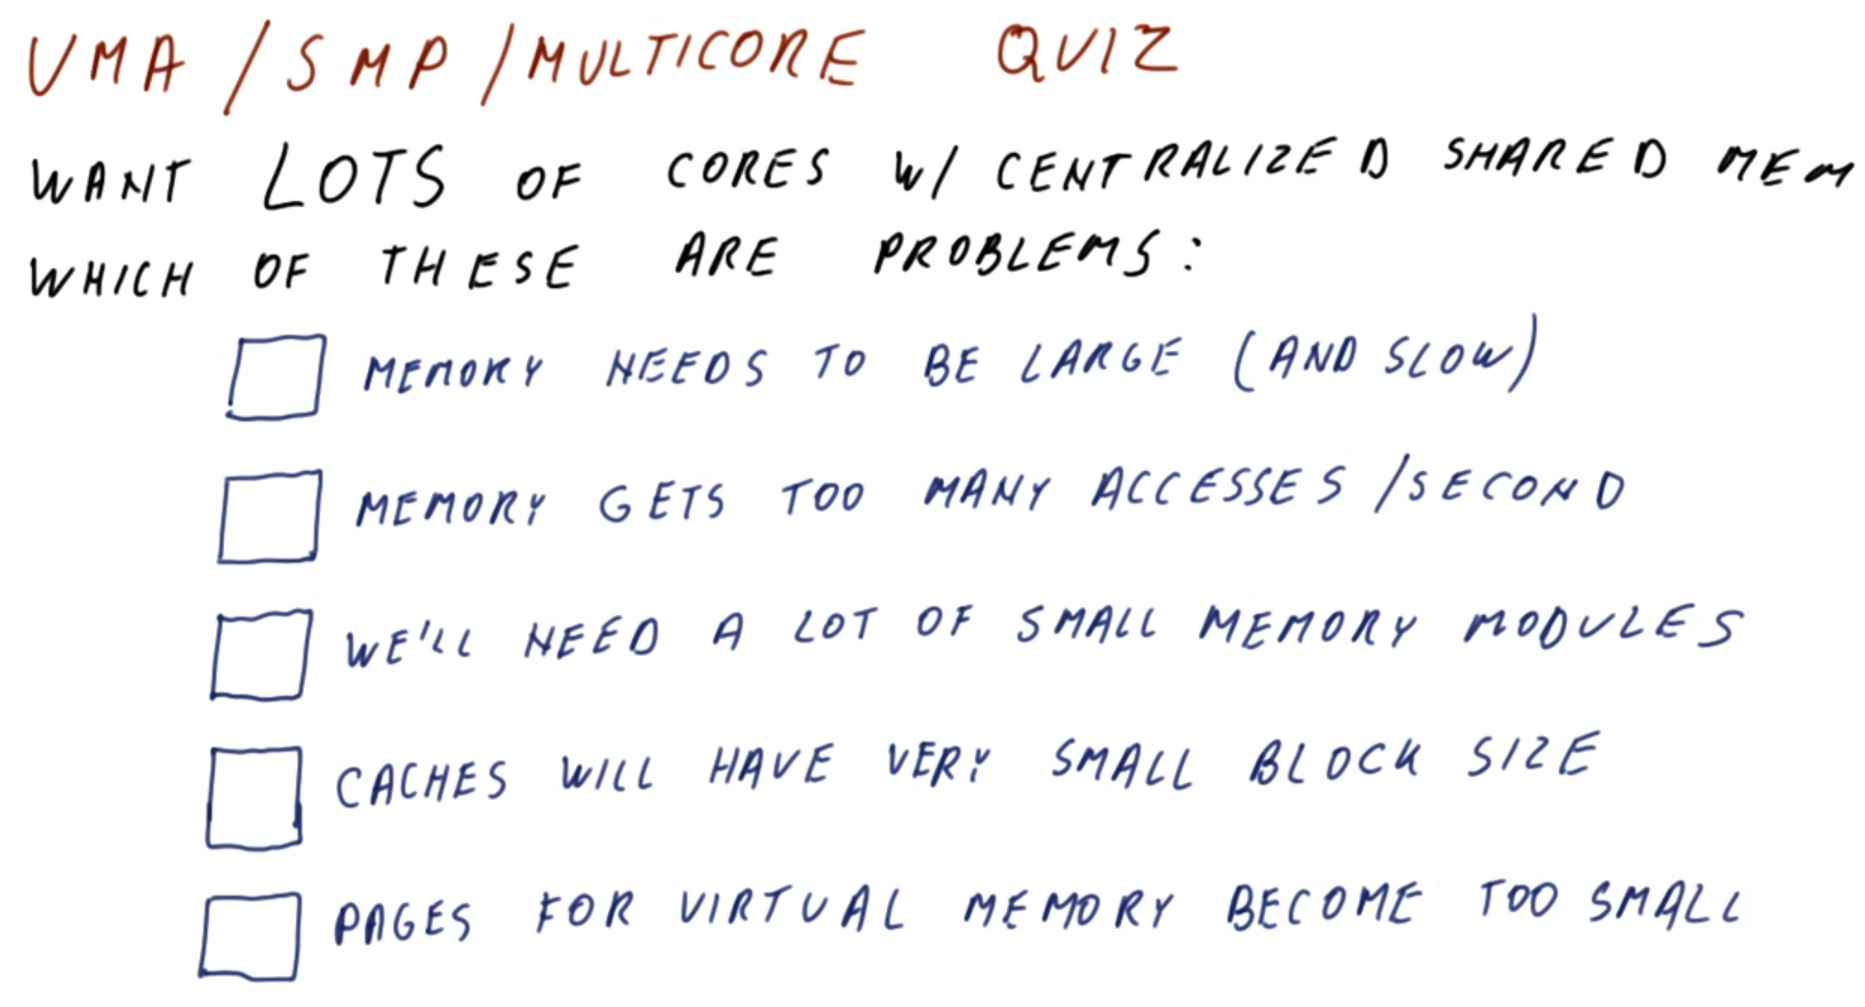 UMA / SMP / MULTICORE QUIZ
WANT LOTS OF CORES W/ CENTRALIZED SHARED MEM
WHICH OF THESE ARE PROBLEMS:
MEMORY NEEDS TO BE LARGE (AND SLOW)
MEMORY GETS TOO MANY ACCESSES /SECOND
WE'LL NEED A LOT OF SMALL MEMORY MODULES
CACHES WILL HAVE VERY SMALL BLOCK SIZE
PAGES FOR VIRTUAL MEMORY BECOME TOO SMALL